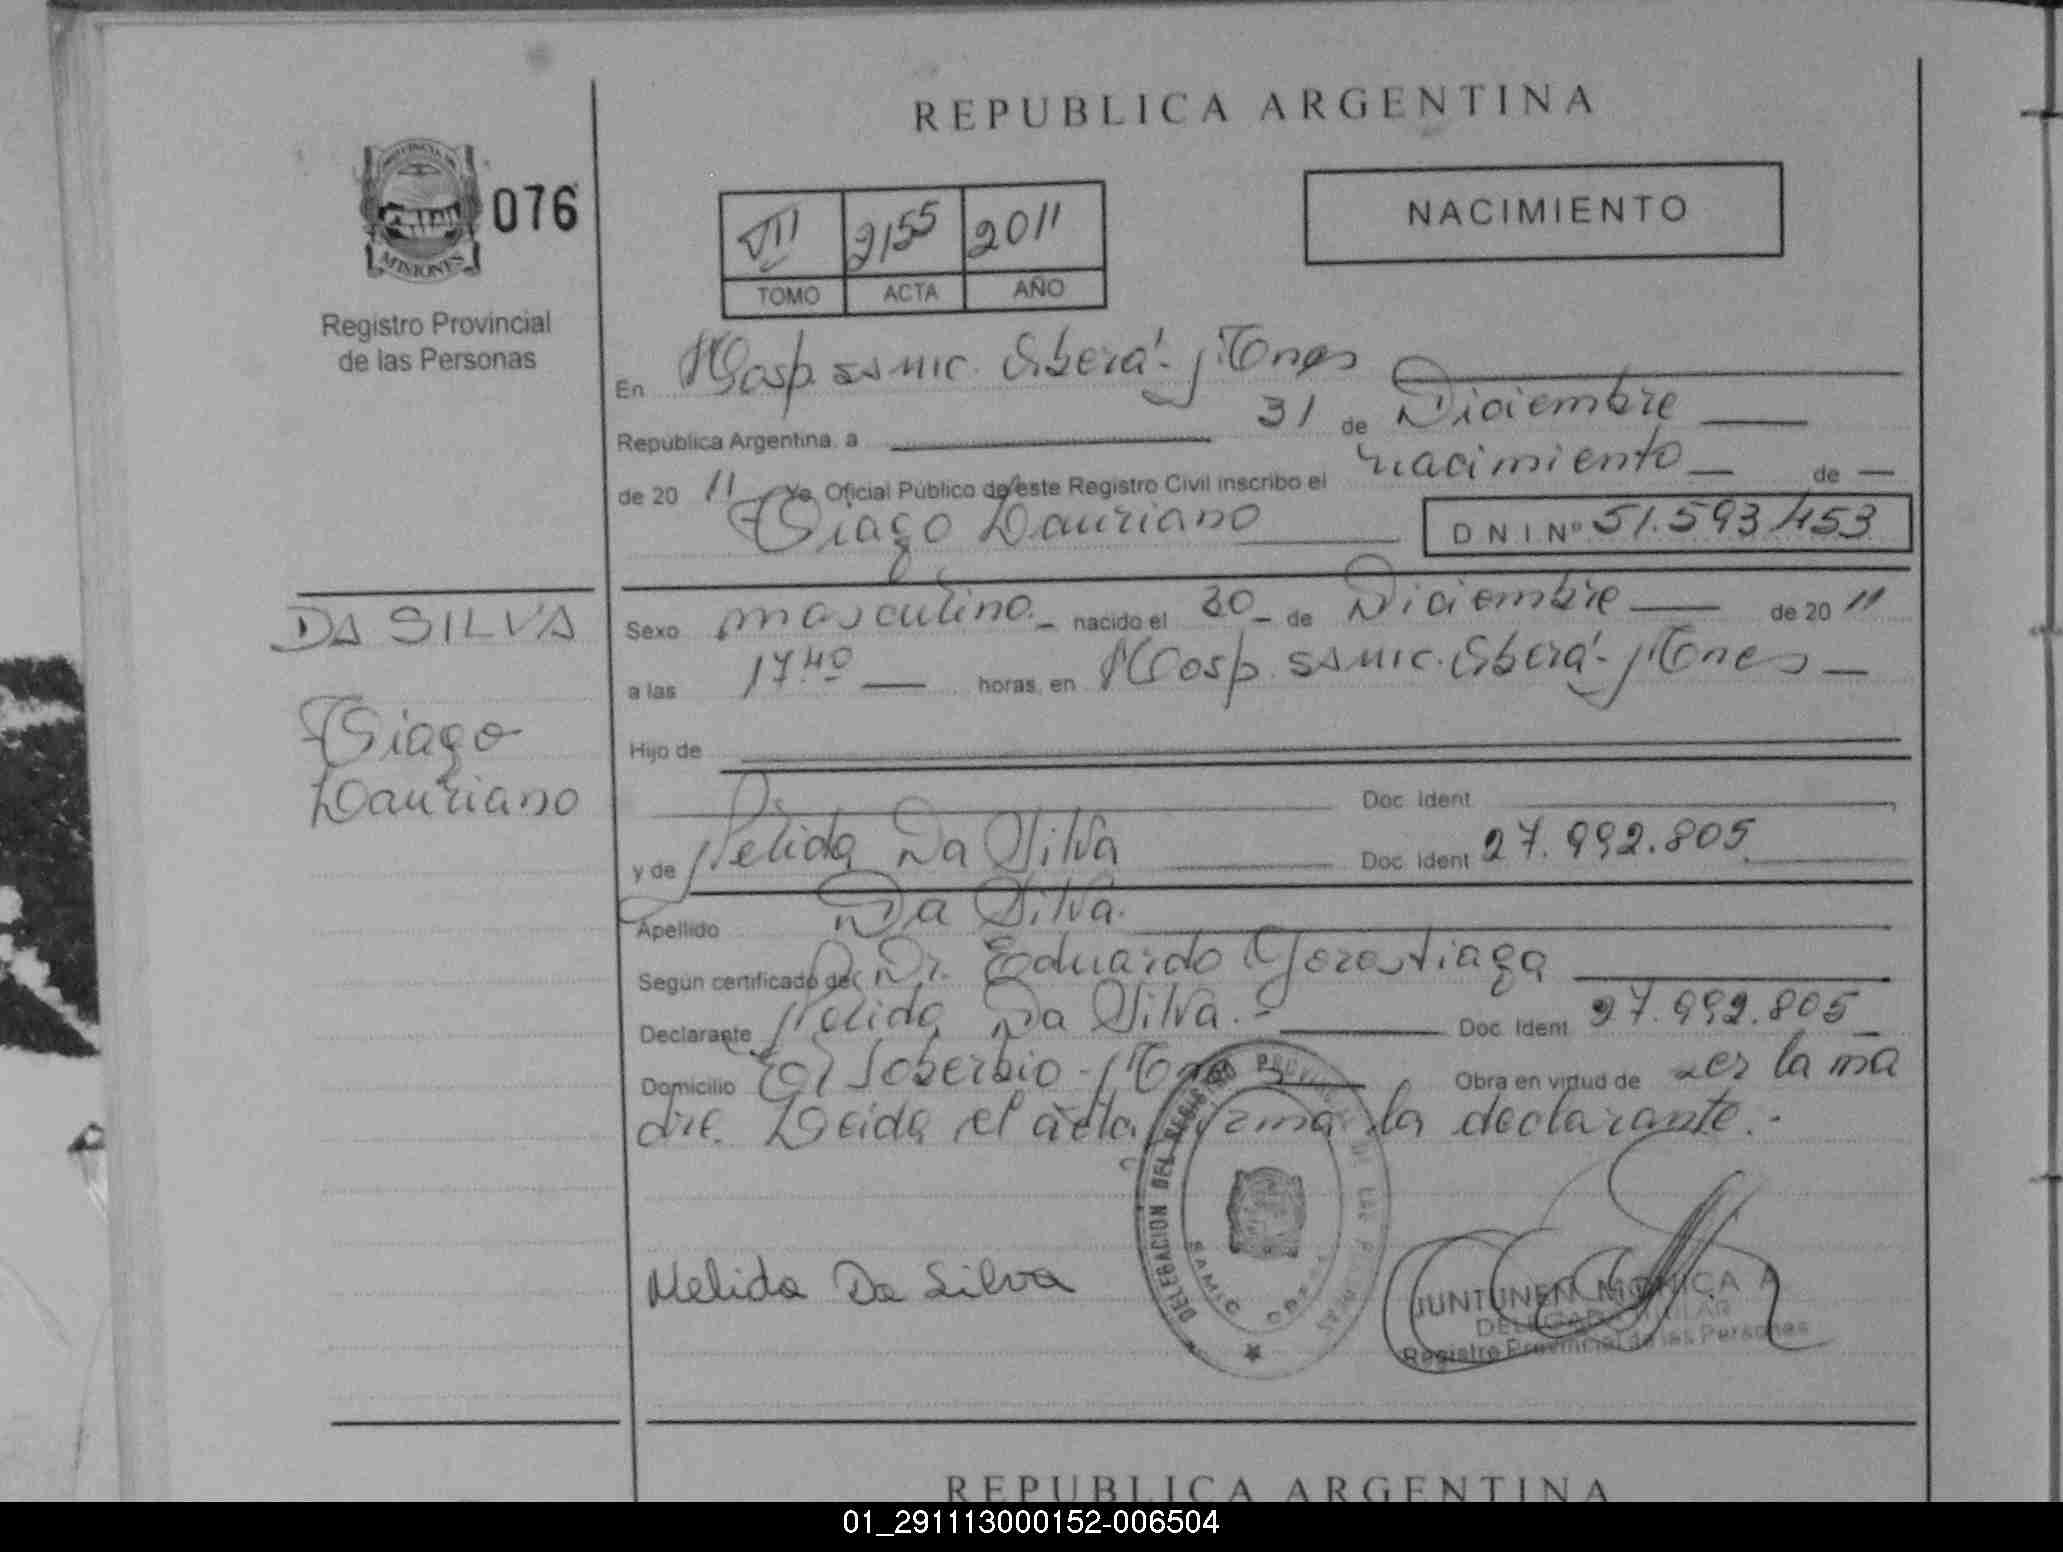 REPUBLICA ARGENTINA
MISIONES
076
Registro Provincial
de las Personas
VIII 2155 2011
TOMO ACTA AÑO
NACIMIENTO
En Hosp. SAMIC. Oberá - Mnes
Republica Argentina, a 31 de Diciembre
de 20 11 Yo, Oficial Público de este Registro Civil inscribo el nacimiento de
Tiago Lauriano
D N I Nº 51.593.453
DA SILVA
Tiago
Lauriano
Sexo masculino nacido el 30 de Diciembre de 20 11
a las 17.40 horas, en Hosp. SAMIC. Oberá - Mnes
Hijo de
Doc. Ident
y de Nelida Da Silva Doc. Ident 27.992.805
Apellido Da Silva.
Según certificado del Dr. Eduardo Gorostiaga
Declarante Nelida Da Silva.- Doc. Ident 27.992.805
Domicilio El Soberbio - Mnes Obra en virtud de ser la ma
dre. Leida el acta, firma la declarante.-
Nelida Da Silva
DELEGACION DEL REGISTRO PROVINCIAL DE LAS PERSONAS
SAMIC OBERA
JUNTUNEN MONICA A
DELEGADA TITULAR
Registro Provincial de las Personas
REPUBLICA ARGENTINA
01_291113000152-006504